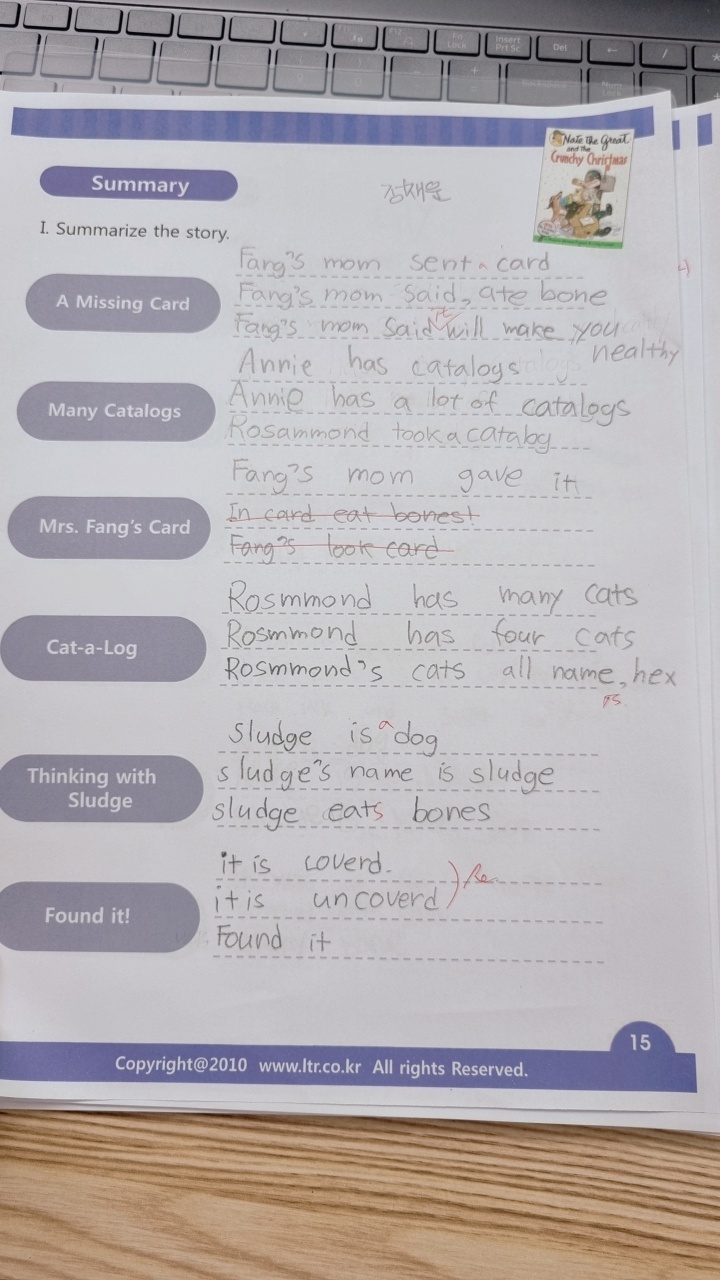 Insert
Prt Sc
Del
Nate the Great
and the
Crunchy Christmas
Summary
강채운
I. Summarize the story.
A Missing Card
Fang's mom sent a card
Fang's mom said, ate bone
Fang's mom said it will make you
healthy
Many Catalogs
Annie has catalogs
Annie has a lot of catalogs
Rosammond took a catalog
Mrs. Fang's Card
Fang's mom gave it
In card eat bones!
Fang's look card
Cat-a-Log
Rosmmond has many cats
Rosmmond has four cats
Rosmmond's cats all name, hex
is
Thinking with
Sludge
Sludge is a dog
sludge's name is sludge
sludge eats bones
Found it!
it is coverd.
it is uncoverd
Re
Found it
15
Copyright@2010 www.ltr.co.kr All rights Reserved.